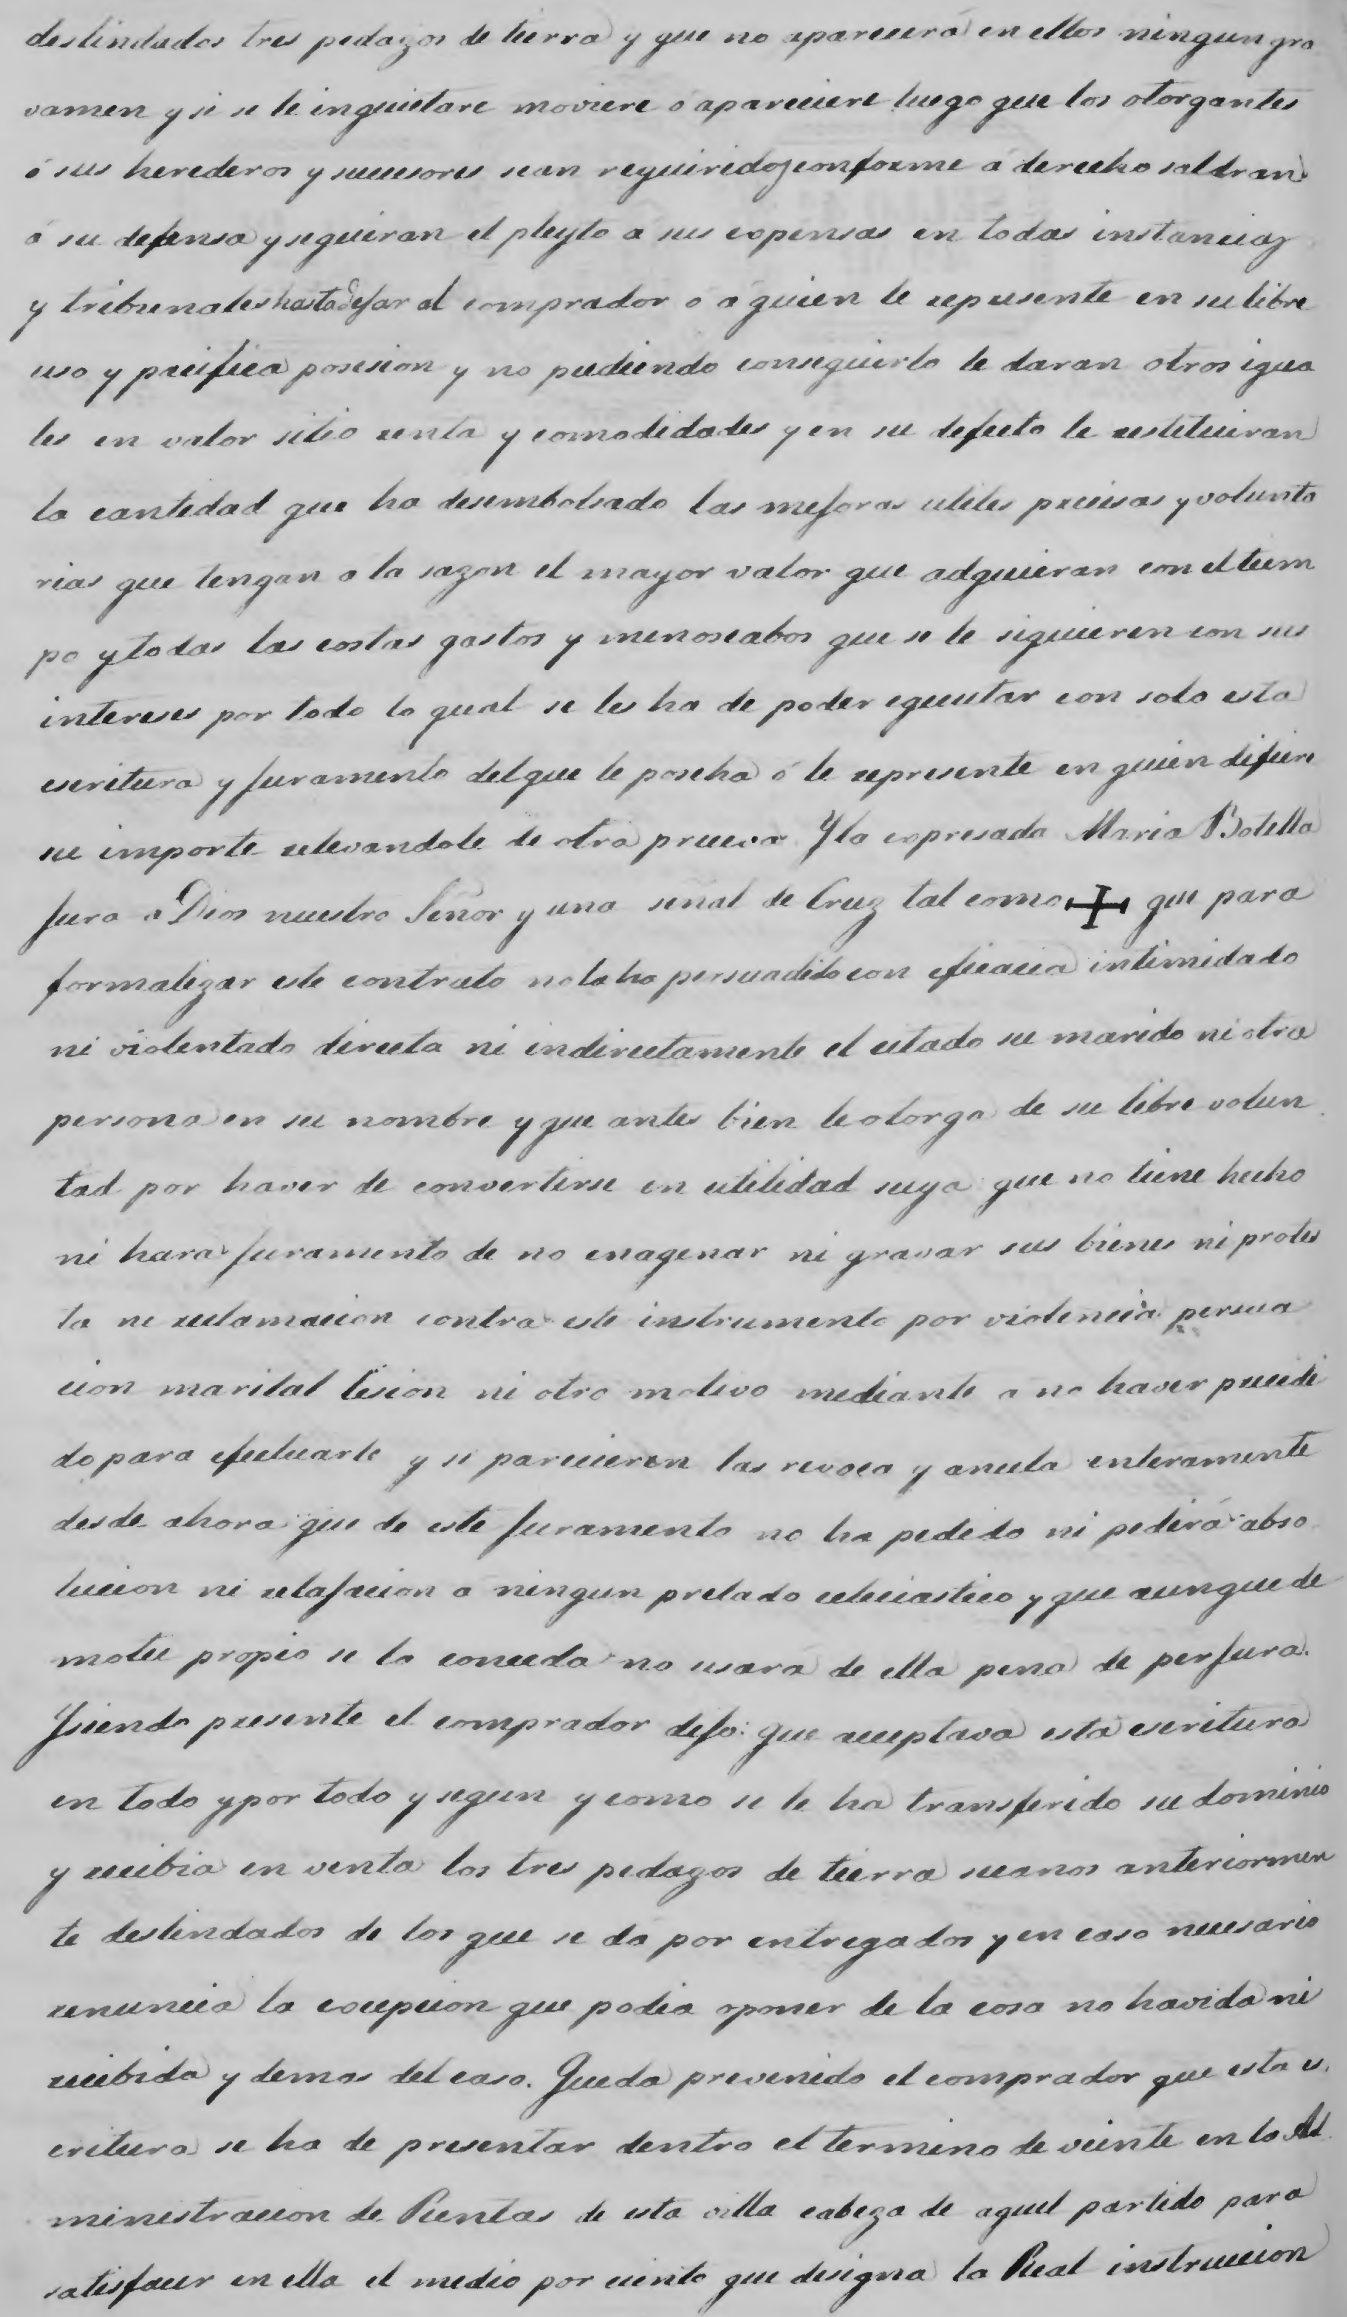 deslindados tres pedazos de tierra y que no aparecera en ellos ningun gra
vamen y si se le inquietare moviere ó apareciere luego que los otorgantes
ó sus herederos y sucesores sean requiridos conforme á derecho saldran
á su defensa y seguiran el pleyto a sus expensas en todas instancias
y tribunales hasta dejar al comprador o á quien le represente en su libre
uso y pacifica posesion y no pudiendo conseguirlo le daran otros igua
les en valor sitio renta y comodidades y en su defecto le restituiran
la cantidad que ha desembolsado las mejoras utiles precisas y volunta
rias que tengan a la sazon el mayor valor que adquieran con el tiem
po y todas las costas gastos y menoscabos que se le siguieren con sus
intereses por todo lo qual se les ha de poder egecutar con solo esta
escritura y juramento del que le poseha ó le represente en quien difiere
su importe relevandole de otra prueva. Y la expresada Maria Botella
jura a Dios nuestro Señor y una señal de Cruz tal como + que para
formalizar este contrato no la ha persuadido con eficacia intimidado
ni violentado directa ni indirectamente el citado su marido ni otra
persona en su nombre y que antes bien le otorga de su libre volun
tad por haver de convertirse en utilidad suya que no tiene hecho
ni hara juramento de no enagenar ni gravar sus bienes ni protes
ta ni reclamacion contra este instrumento por violencia persua
cion marital lesion ni otro motivo mediante a no haver precedi
do para efectuarle y si parecieren las revoca y anula enteramente
desde ahora que de este juramento no ha pedido ni pedirá abso
lucion ni relajacion a ningun prelado eclesiastico y que aunque de
motu propio se la conceda no usará de ella pena de perjura.
Y siendo presente el comprador dijo: que aceptava esta escritura
en todo y por todo y segun y como se le ha transferido su dominio
y recibia en venta los tres pedazos de tierra secanos anteriormen
te deslindados de los que se da por entregados y en caso necesario
renuncia la excepcion que podia oponer de la cosa no havida ni
recibida y demas del caso. Queda prevenido el comprador que esta es
critura se ha de presentar dentro el termino de veinte en la Ad
ministracion de Rentas de esta villa cabeza de aquel partido para
satisfacer en ella el medio por ciento que designa la Real instruccion